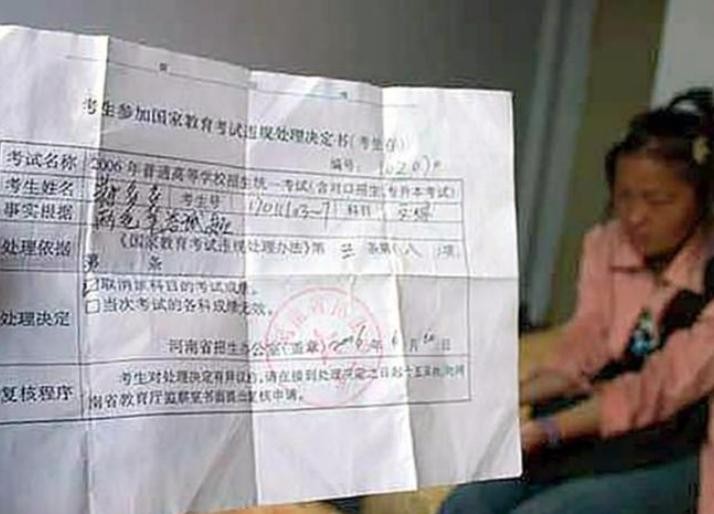 考生参加国家教育考试违规处理决定书(考生存)
编号:
考试名称 2006年普通高等学校招生统一考试(含对口招生、专升本考试)
考生姓名 多多 考生号 科目 文综
事实根据 两色笔答试题
处理依据 《国家教育考试违规处理办法》第 三 条第(八)项、
第 条
处理决定 ☑取消该科目的考试成绩。
□当次考试的各科成绩无效。
河南省招生办公室(盖章) 2006年6月20日
复核程序 考生对处理决定有异议的,请在接到处理决定之日起十五日内,向河
南省教育厅监察室书面提出复核申请。